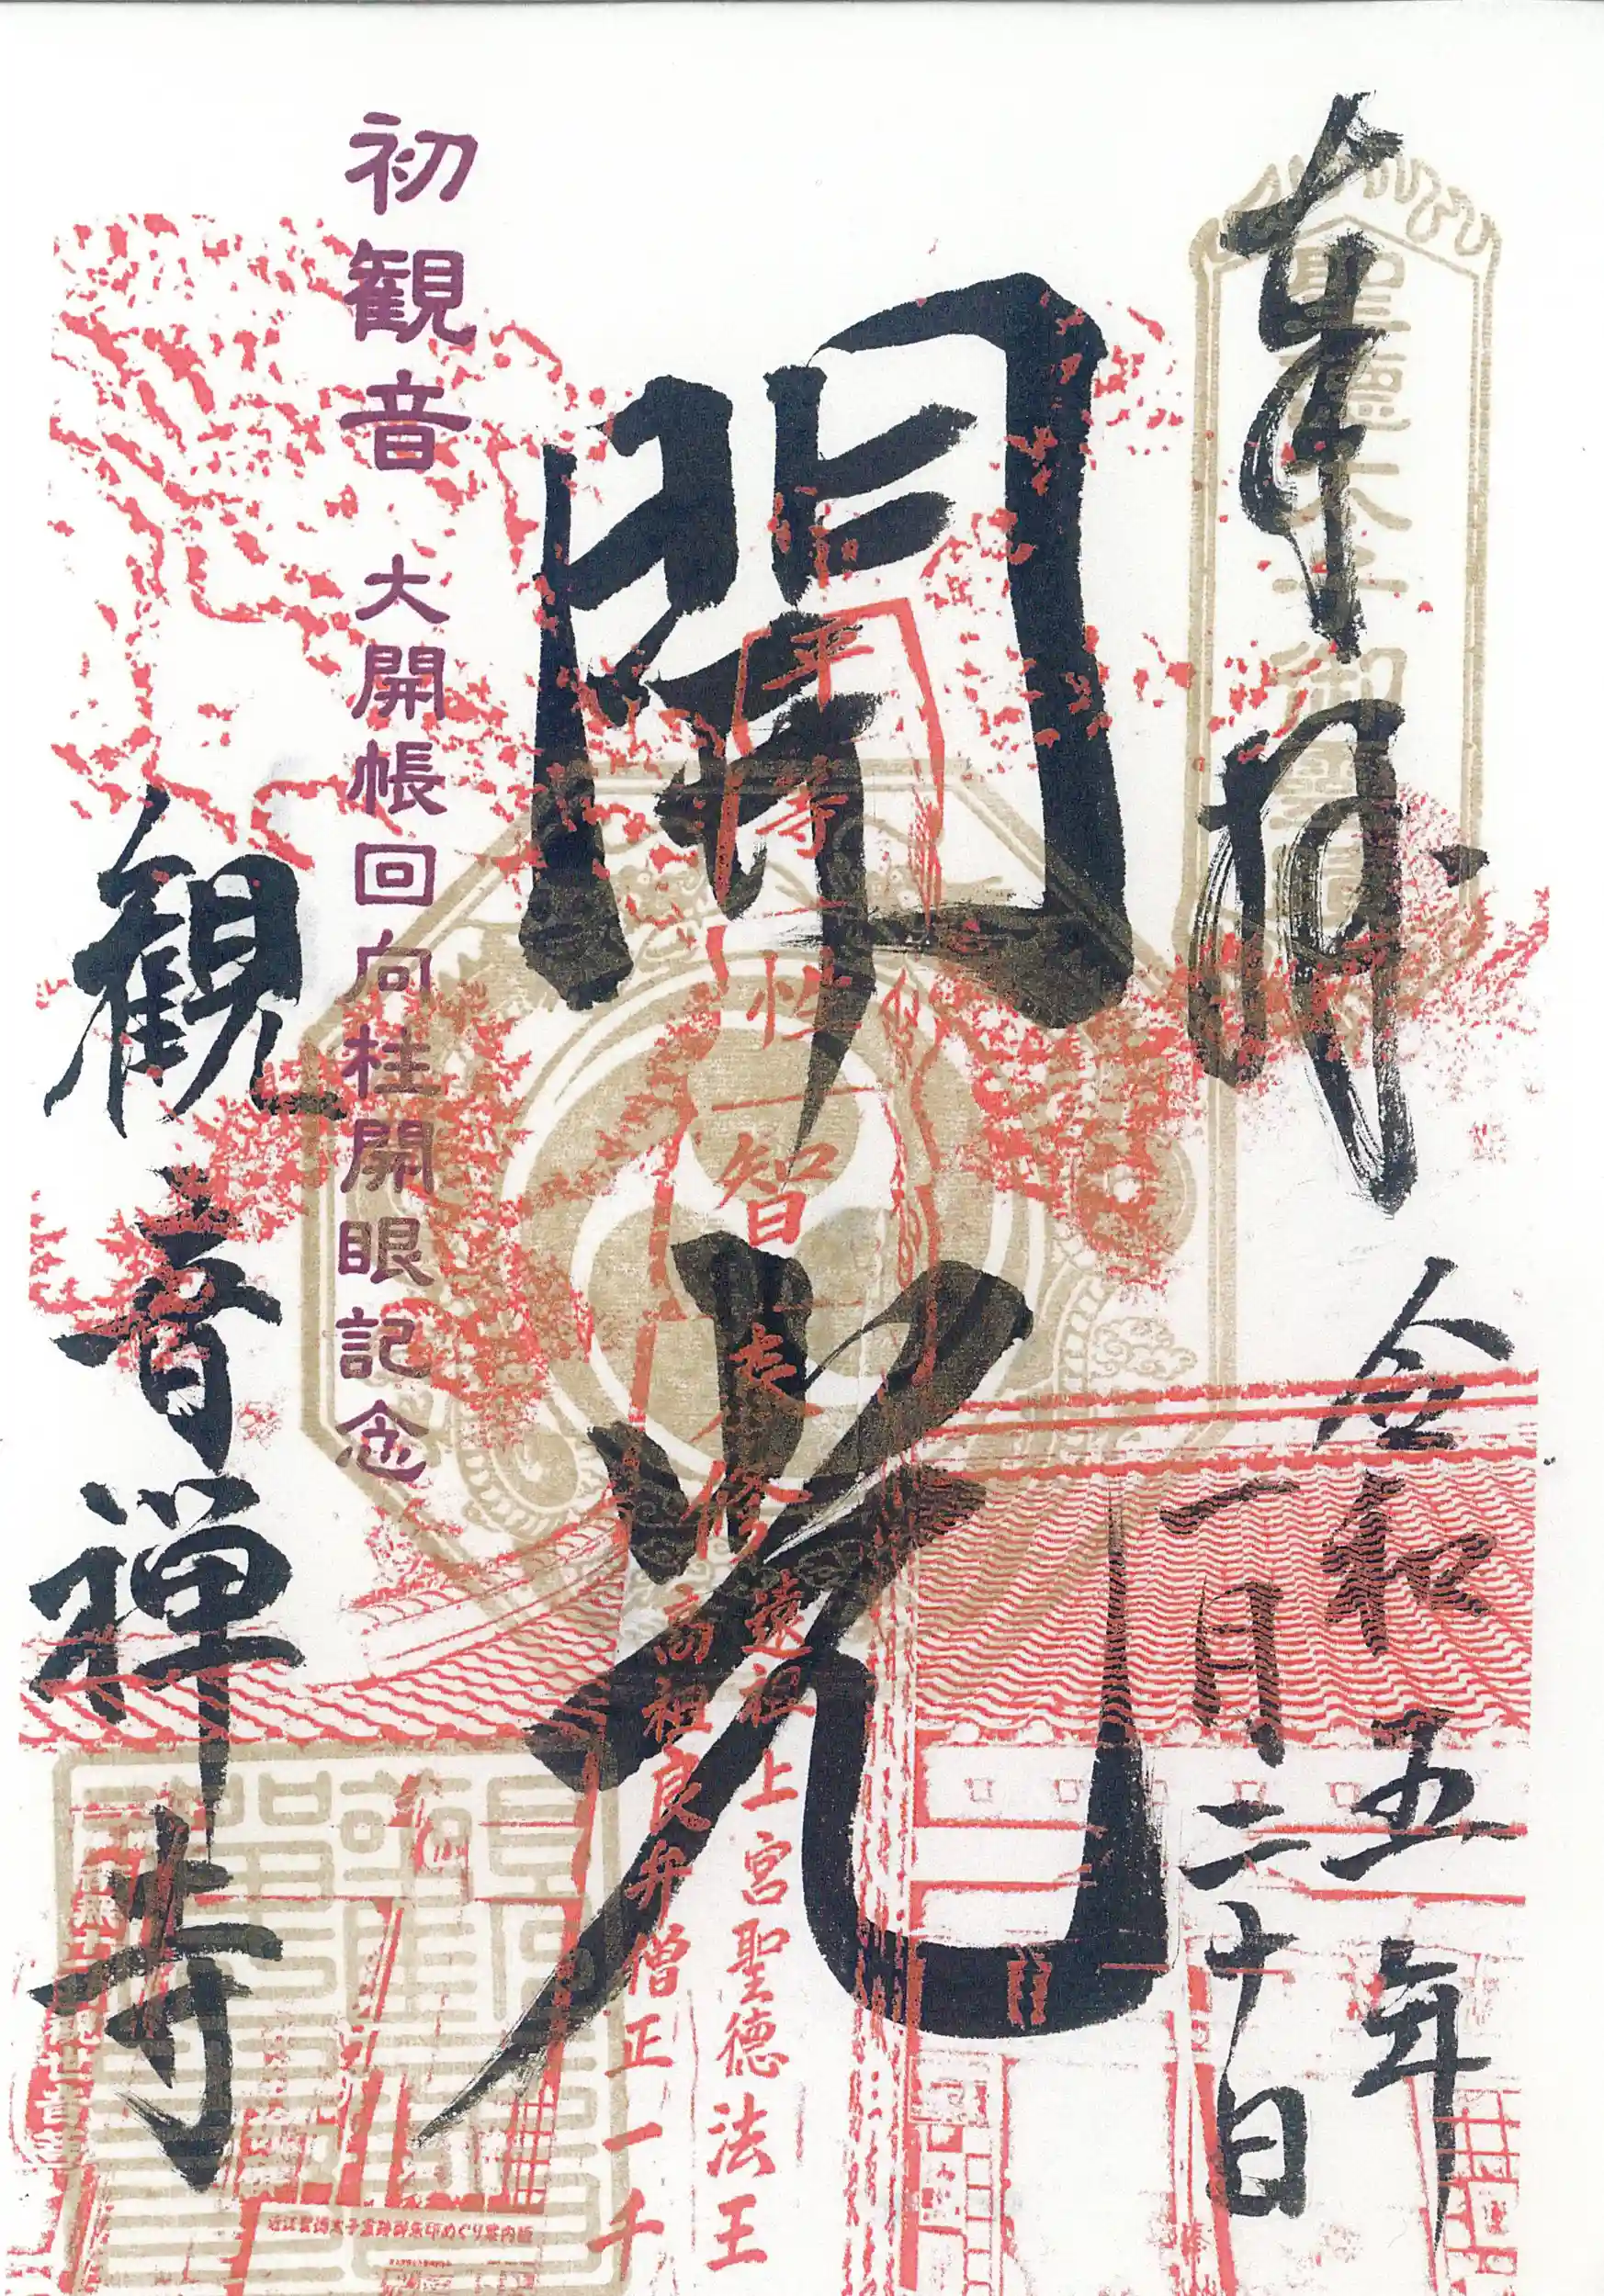 奉拝
令和五年
一月二十日
聖徳太子御霊蹟
開光
平等性智
遠祖 上宮聖徳法王
高祖 良弁僧正一千
初観音 大開帳回向柱開眼記念
観音禅寺
近江聖徳太子霊跡御朱印めぐり案内所